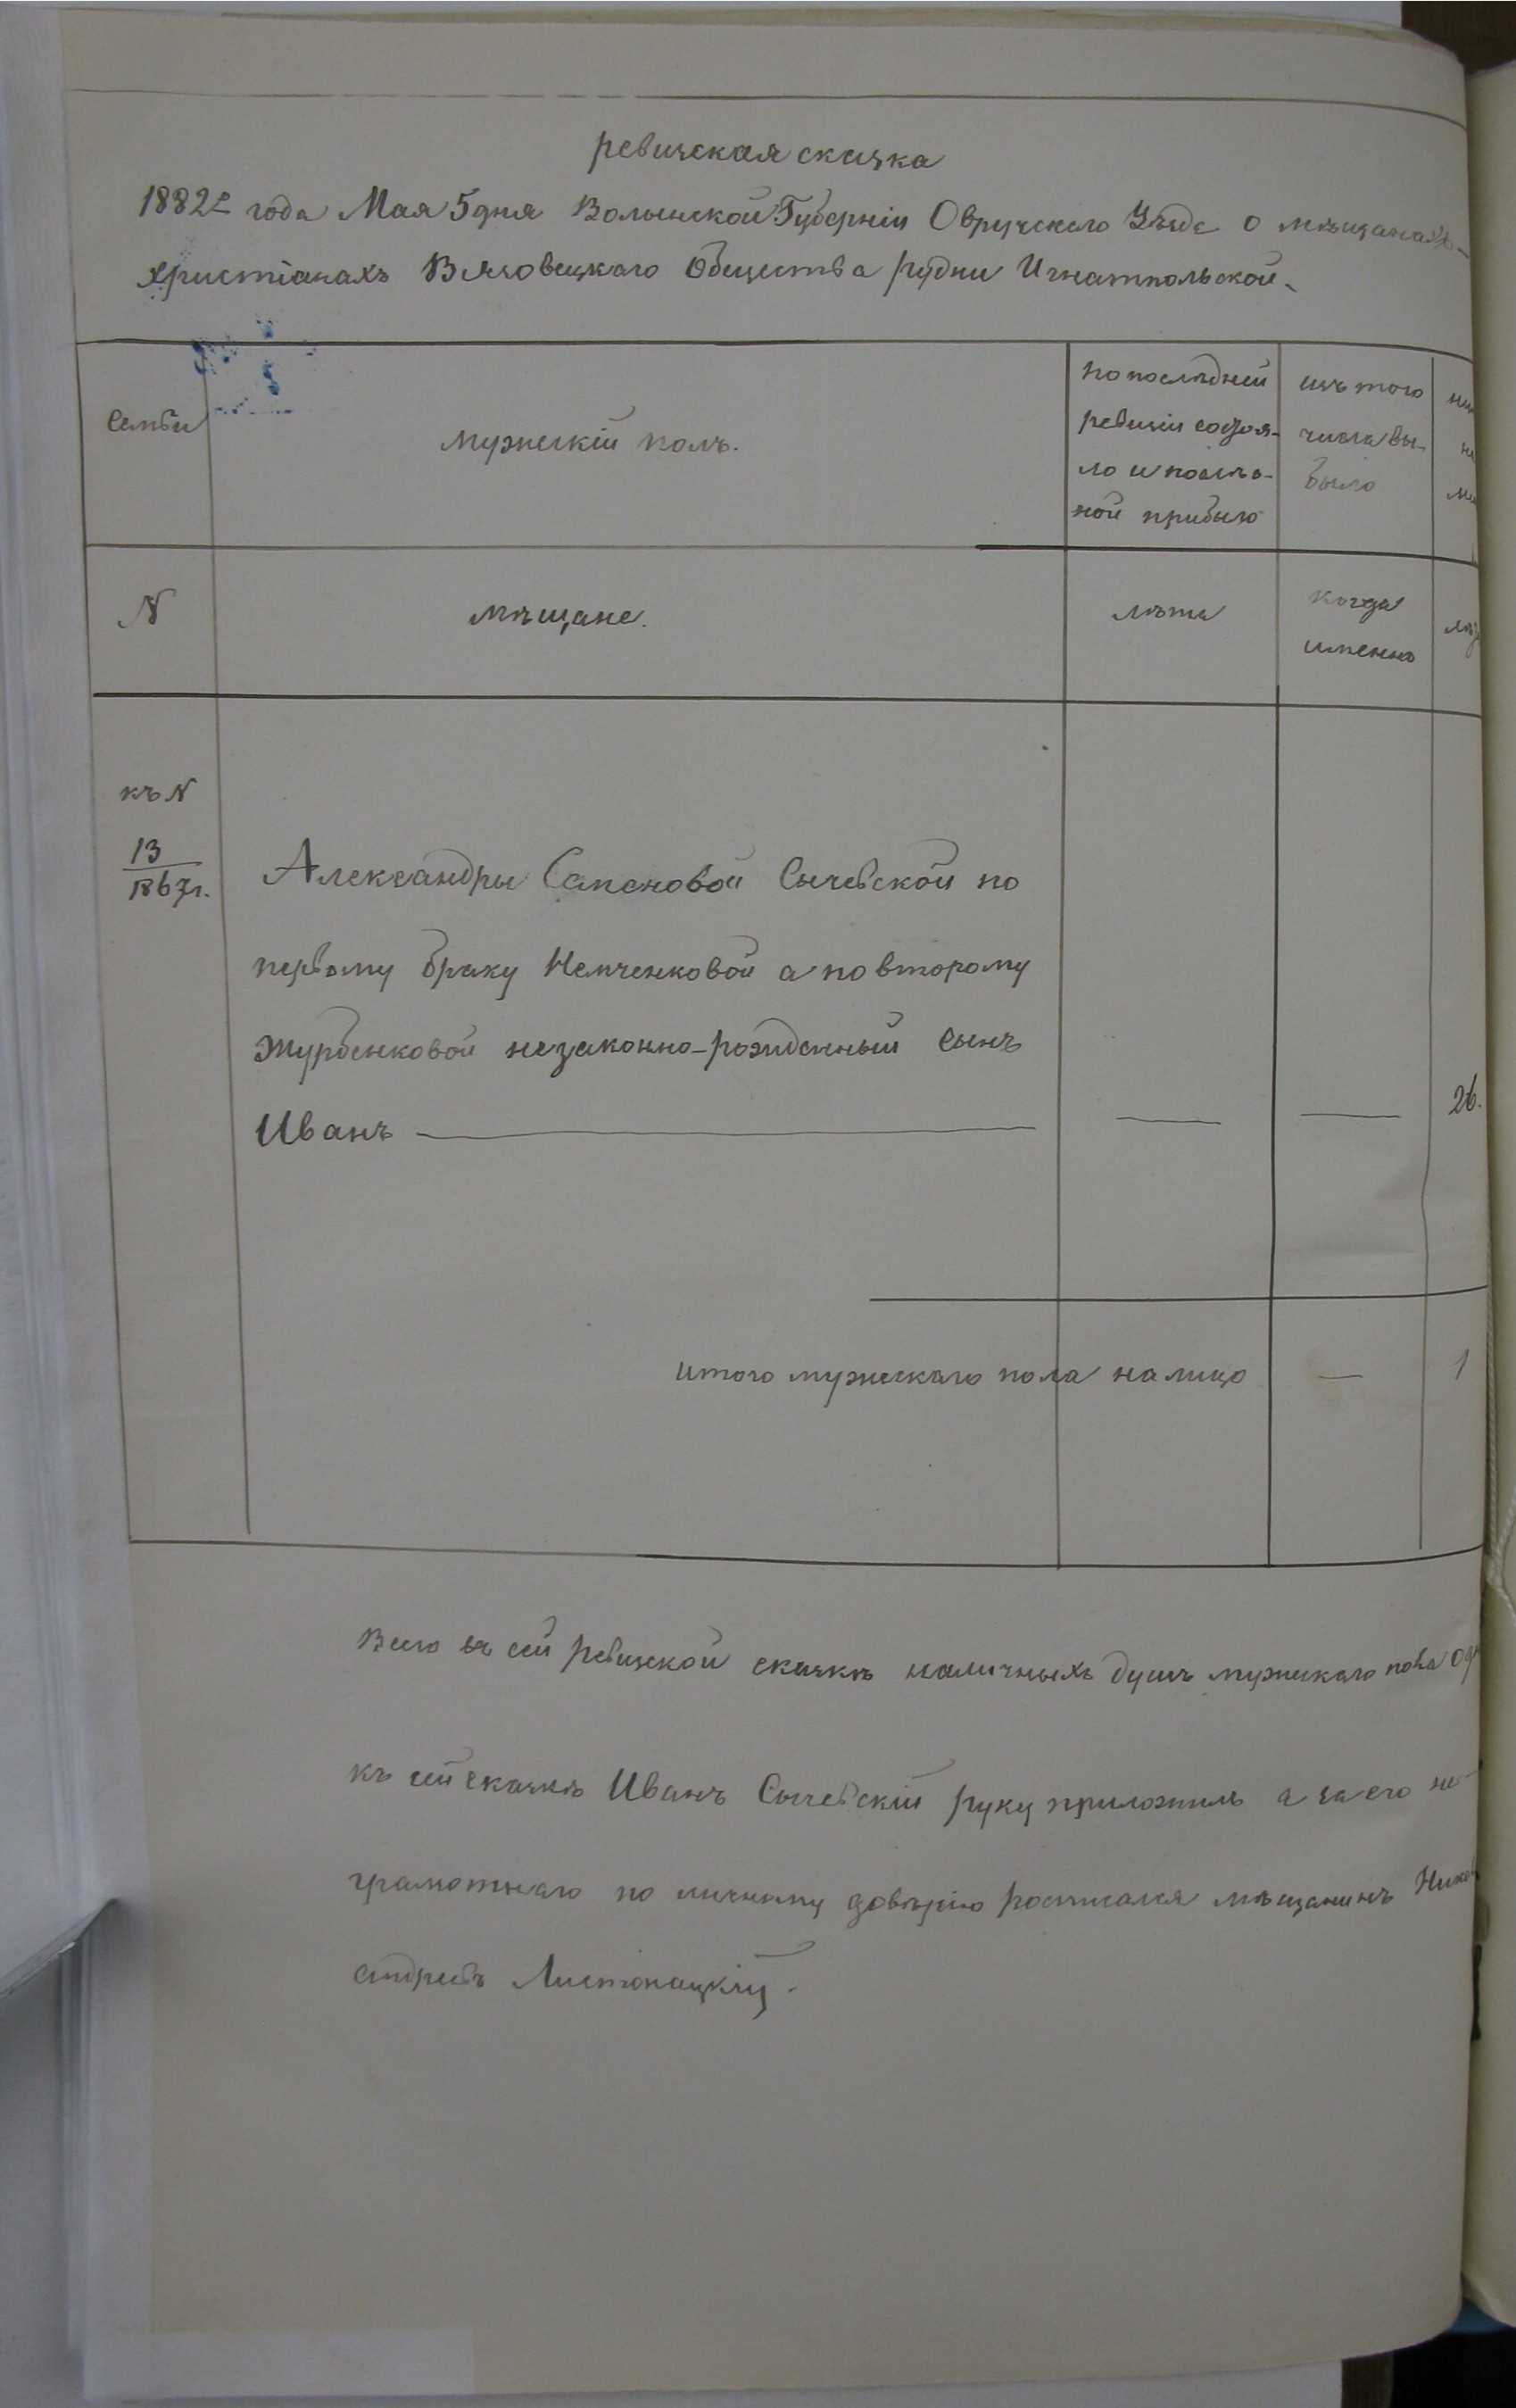 ревизская сказка
1882го года Мая 5 дня Волынской Губерніи Овручскаго Уѣзда о мѣщанахъ-
христіанахъ Вязовецкаго Общества рудни Игнатпольской.
Семьи
мужескій полъ.
по послѣдней
ревизіи состоя-
ло и послѣ о-
ной прибыло
изъ того
числа вы-
было
N
мѣщане.
лѣта
когда
именно
къ N
13
1867г.
Александры Семеновой Сычевской по
первому браку Немченковой а по второму
Журбенковой незаконно-рожденный сынъ
Иванъ
26.
итого мужескаго пола на лицо
1
Всего въ сей ревизской сказкѣ наличныхъ душъ мужескаго пола
къ сей сказкѣ Иванъ Сычевскій руку приложилъ а за его не-
грамотнаго по личному довѣрію росписался мѣщанинъ